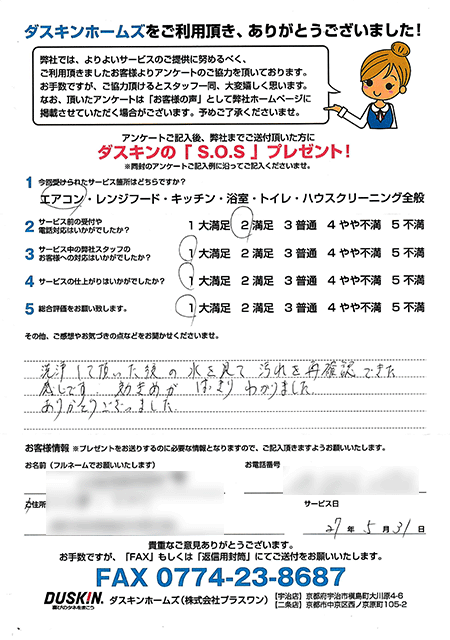 ダスキンホームズをご利用頂き、ありがとうございました!
弊社では、よりよいサービスのご提供に努めるべく、
ご利用頂きましたお客様よりアンケートのご協力を頂いております。
お手数ですが、ご協力頂けるとスタッフ一同、大変嬉しく思います。
なお、頂いたアンケートは「お客様の声」として弊社ホームページに
掲載させていただく場合がございます。予めご了承くださいませ。
アンケートご記入後、弊社までご送付頂いた方に
ダスキンの「 S.O.S 」プレゼント!
※同封のアンケートご記入例に沿ってご記入くださいませ。
1 今回受けられたサービス箇所はどちらですか?
エアコン・レンジフード・キッチン・浴室・トイレ・ハウスクリーニング全般
2 サービス前の受付や
電話対応はいかがでしたか? 1 大満足 2 満足 3 普通 4 やや不満 5 不満
3 サービス中の弊社スタッフの
お客様への対応はいかがでしたか? 1 大満足 2 満足 3 普通 4 やや不満 5 不満
4 サービスの仕上がりはいかがでしたか? 1 大満足 2 満足 3 普通 4 やや不満 5 不満
5 総合評価をお願い致します。 1 大満足 2 満足 3 普通 4 やや不満 5 不満
その他、ご感想やお気づきの点などをお聞かせくださいませ。
洗浄して頂いた後の水を見て汚れを再確認できた
感じです。効きめがはっきりわかりました。
ありがとうございました。
お客様情報 ※プレゼントをお送りするのに必要な情報となりますので、ご記入頂きますようお願いいたします。
お名前(フルネームでお願いいたします) お電話番号
ご住所 サービス日
27年 5月 31日
貴重なご意見ありがとうございます。
お手数ですが、「FAX」もしくは「返信用封筒」にてご送付をお願いいたします。
FAX 0774-23-8687
DUSKIN 喜びのタネをまこう ダスキンホームズ(株式会社プラスワン) 【宇治店】京都府宇治市槇島町大川原4-6
【二条店】京都市中京区西ノ京原町105-2